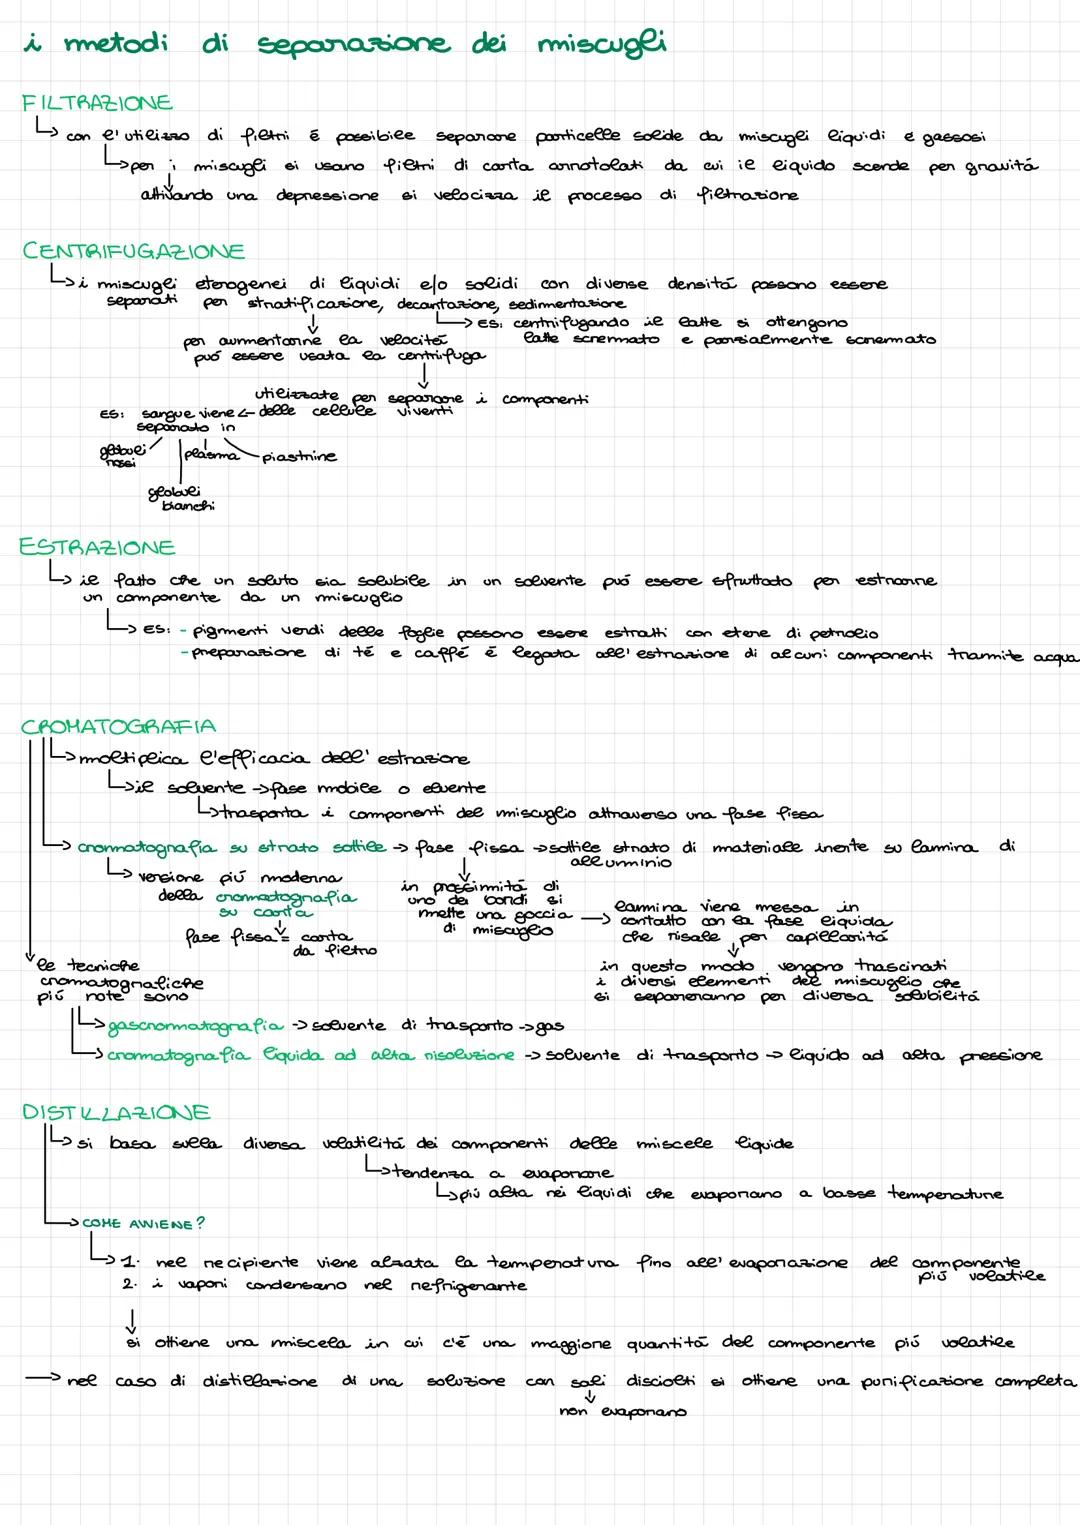 i metodi di separazione dei miscugli
FILTRAZIONE
con l'utilizzo di filtri é possibile separare particelle solide da miscugli liquidi e gassosi
per i miscugli si usano filtri di carta arrotolati da cui il liquido scende per gravitá
attivando una depressione si velocizza il processo di filtrazione
CENTRIFUGAZIONE
i miscugli eterogenei di liquidi e/o solidi con diverse densitá possono essere
separati per stratificazione, decantazione, sedimentazione
ES: centrifugando il latte si ottengono
latte scremato e parzialmente scremato
per aumentarne la velocitá
puó essere usata la centrifuga
utilizzate per separare i componenti
delle cellule viventi
ES: sangue viene
separato in
globuli
rossi
plasma
piastrine
globuli
bianchi
ESTRAZIONE
il fatto che un soluto sia solubile in un solvente puó essere sfruttato per estrarre
un componente da un miscuglio
ES: - pigmenti verdi delle foglie possono essere estratti con etere di petrolio
- preparazione di té e caffé é legata all'estrazione di alcuni componenti tramite acqua
CROMATOGRAFIA
moltiplica l'efficacia dell'estrazione
il solvente -> fase mobile o eluente
trasporta i componenti del miscuglio attraverso una fase fissa
cromatografia su strato sottile -> fase fissa -> sottile strato di materiale inerte su lamina di
alluminio
versione piú moderna
della cromatografia
su carta
fase fissa = carta
da filtro
in prossimitá di
uno dei bordi si
mette una goccia
di miscuglio
lamina viene messa in
contatto con la fase liquida
che risale per capillaritá
in questo modo vengono trascinati
i diversi elementi del miscuglio che
si separeranno per diversa solubilitá
le tecniche
cromatografiche
piú note sono
gascromatografia -> solvente di trasporto -> gas
cromatografia liquida ad alta risoluzione -> solvente di trasporto -> liquido ad alta pressione
DISTILLAZIONE
si basa sulla diversa volatilitá dei componenti delle miscele liquide
tendenza a evaporare
piú alta nei liquidi che evaporano a basse temperature
COME AVVIENE?
1. nel recipiente viene alzata la temperatura fino all'evaporazione del componente
piú volatile
2. i vapori condensano nel refrigerante
si ottiene una miscela in cui c'é una maggiore quantitá del componente piú volatile
nel caso di distillazione di una soluzione con sali disciolti si ottiene una purificazione completa
non evaporano